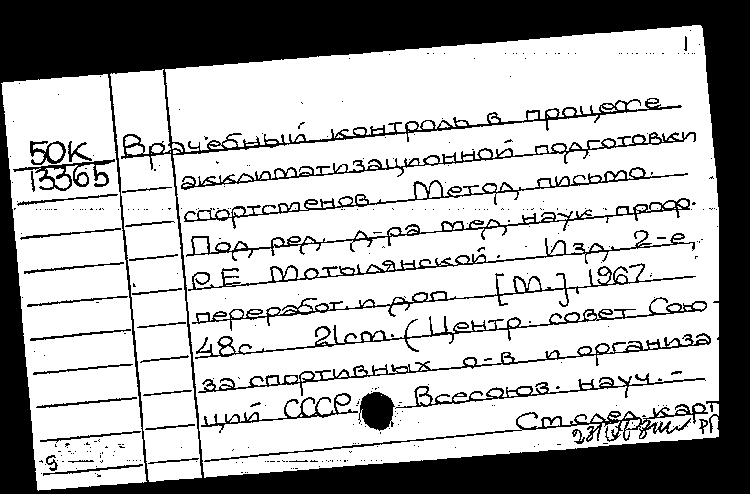 1
50К
13365
Врачебный контроль в процессе
акклиматизационной подготовки
спортсменов. Метод. письмо.
Под ред. д-ра мед. наук, проф.
Р.Е. Мотылянской. Изд. 2-е,
переработ. и доп. [М.], 1967.
48с. 21см. (Центр. совет Сою-
за спортивных о-в и организа-
ций СССР. Всесоюз. науч.-
См. след. карт
РП
9